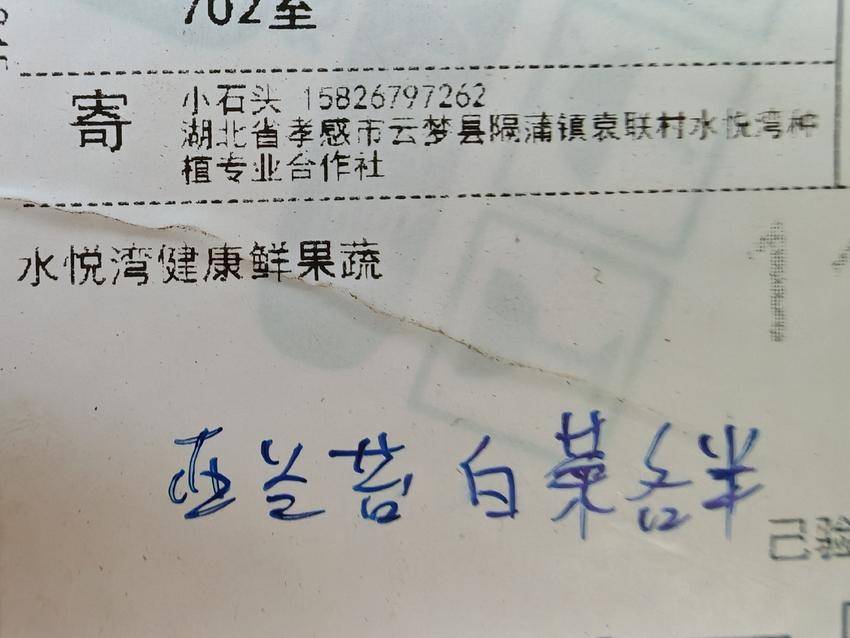 702室
寄
小石头 15826797262
湖北省孝感市云梦县隔蒲镇袁联村水悦湾种
植专业合作社
水悦湾健康鲜果蔬
西兰苔 白菜各半
已验